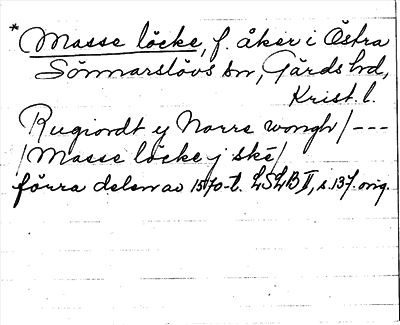 * Masse löcke, f. åker i Östra
Sönnarslövs sn, Gärds hd,
Krist. l.
Rugiordt y Norre wongh/---
/Masse löcke j ske/
förra delen av 1570-t. LSLB II, s. 137 orig.